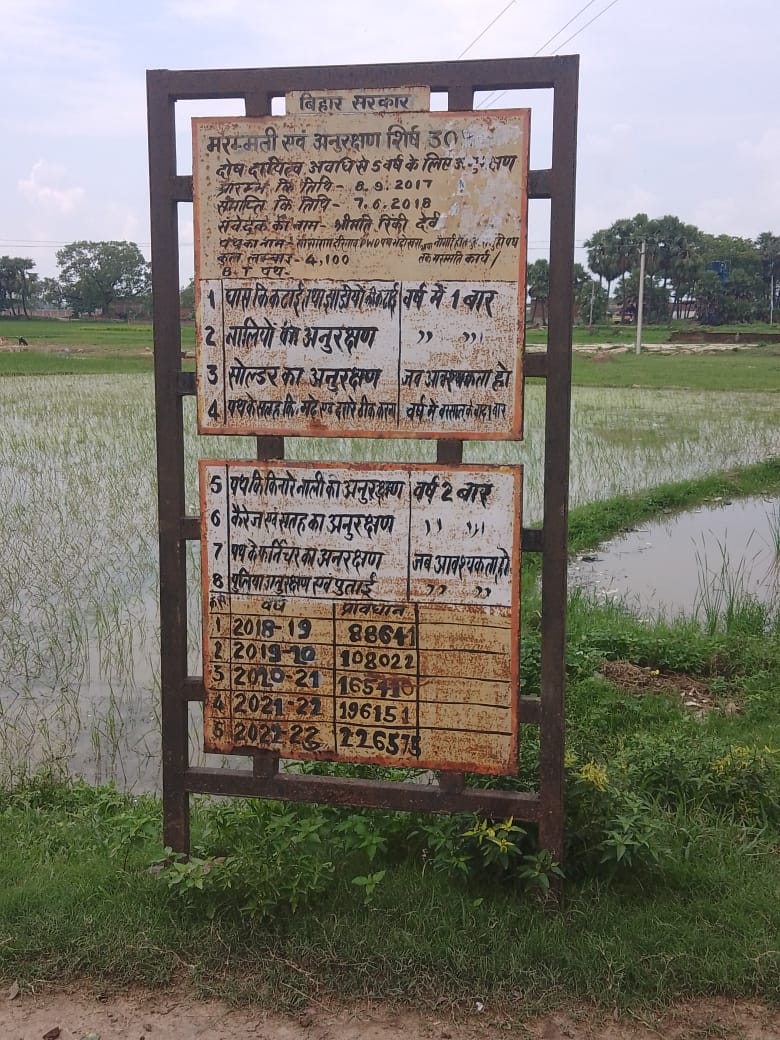 बिहार सरकार
मरम्मती एवं अनुरक्षण शिर्ष 30
दोष दायित्व अवधि से 5 वर्ष के लिए अनुरक्षण
प्रारम्भ कि तिथि - 8.9.2017
समाप्ति कि तिथि - 7.6.2018
संवेदक का नाम - श्रीमति रिंकी देवी
पथ का नाम - PWD पथ
तक मरम्मति कार्य /
कुल लम्बाई - 4.100
B.T पथ -
1 घास कि कटाई तथा झाड़ियों की कटाई वर्ष में 1 बार
2 नालियो का अनुरक्षण ,, ,,
3 सोल्डर का अनुरक्षण जब आवश्यकता हो
4 पथ के सतह कि गढे एवं दरारे ठीक करना वर्ष में बरसात के बाद 1 बार
5 पथ कि किनारे नाली का अनुरक्षण वर्ष 2 बार
6 कैरेज एवं सतह का अनुरक्षण ,, ,,
7 पथ के फर्निचर का अनरक्षण जब आवश्यकता हो
8 पुलिया अनुरक्षण एवं पुताई ,, ,,
वर्ष प्रावधान
1 2018-19 88641
2 2019-20 108022
3 2020-21
4 2021-22 196151
5 2022-23 226575